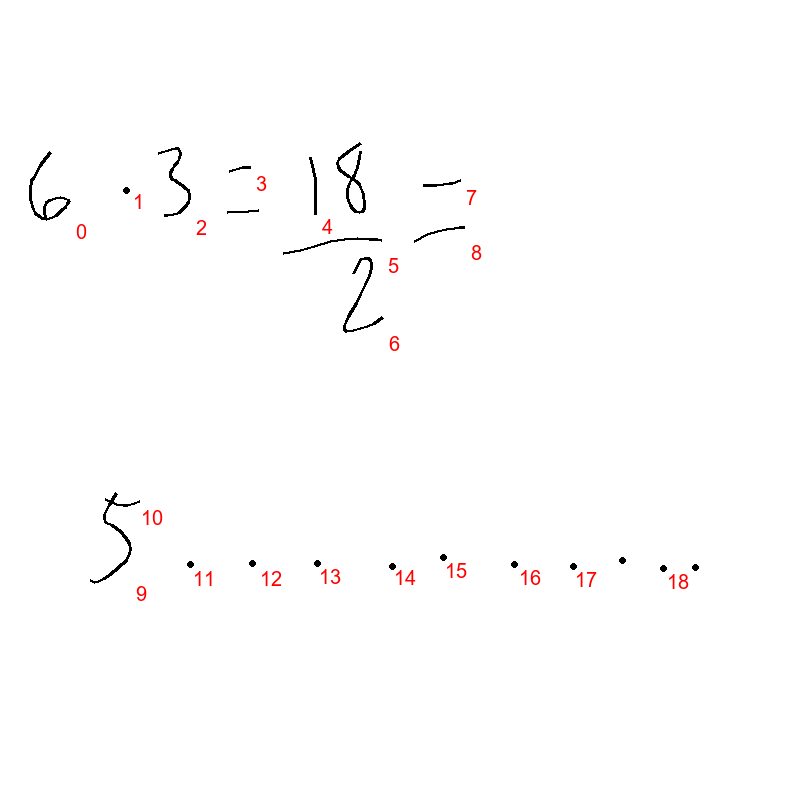 6 · 3 = 18/2 =
0 1 2 3 4 5 6 7 8
5 . . . . . . . . . .
9 10 11 12 13 14 15 16 17 18